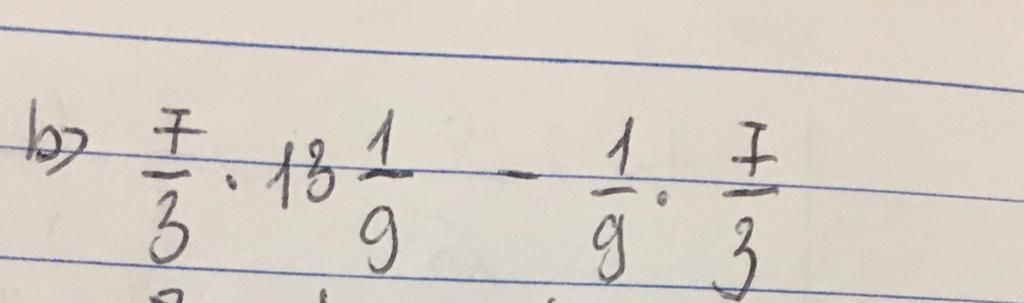 b) 7/3 . 13 1/9 - 1/9 . 7/3